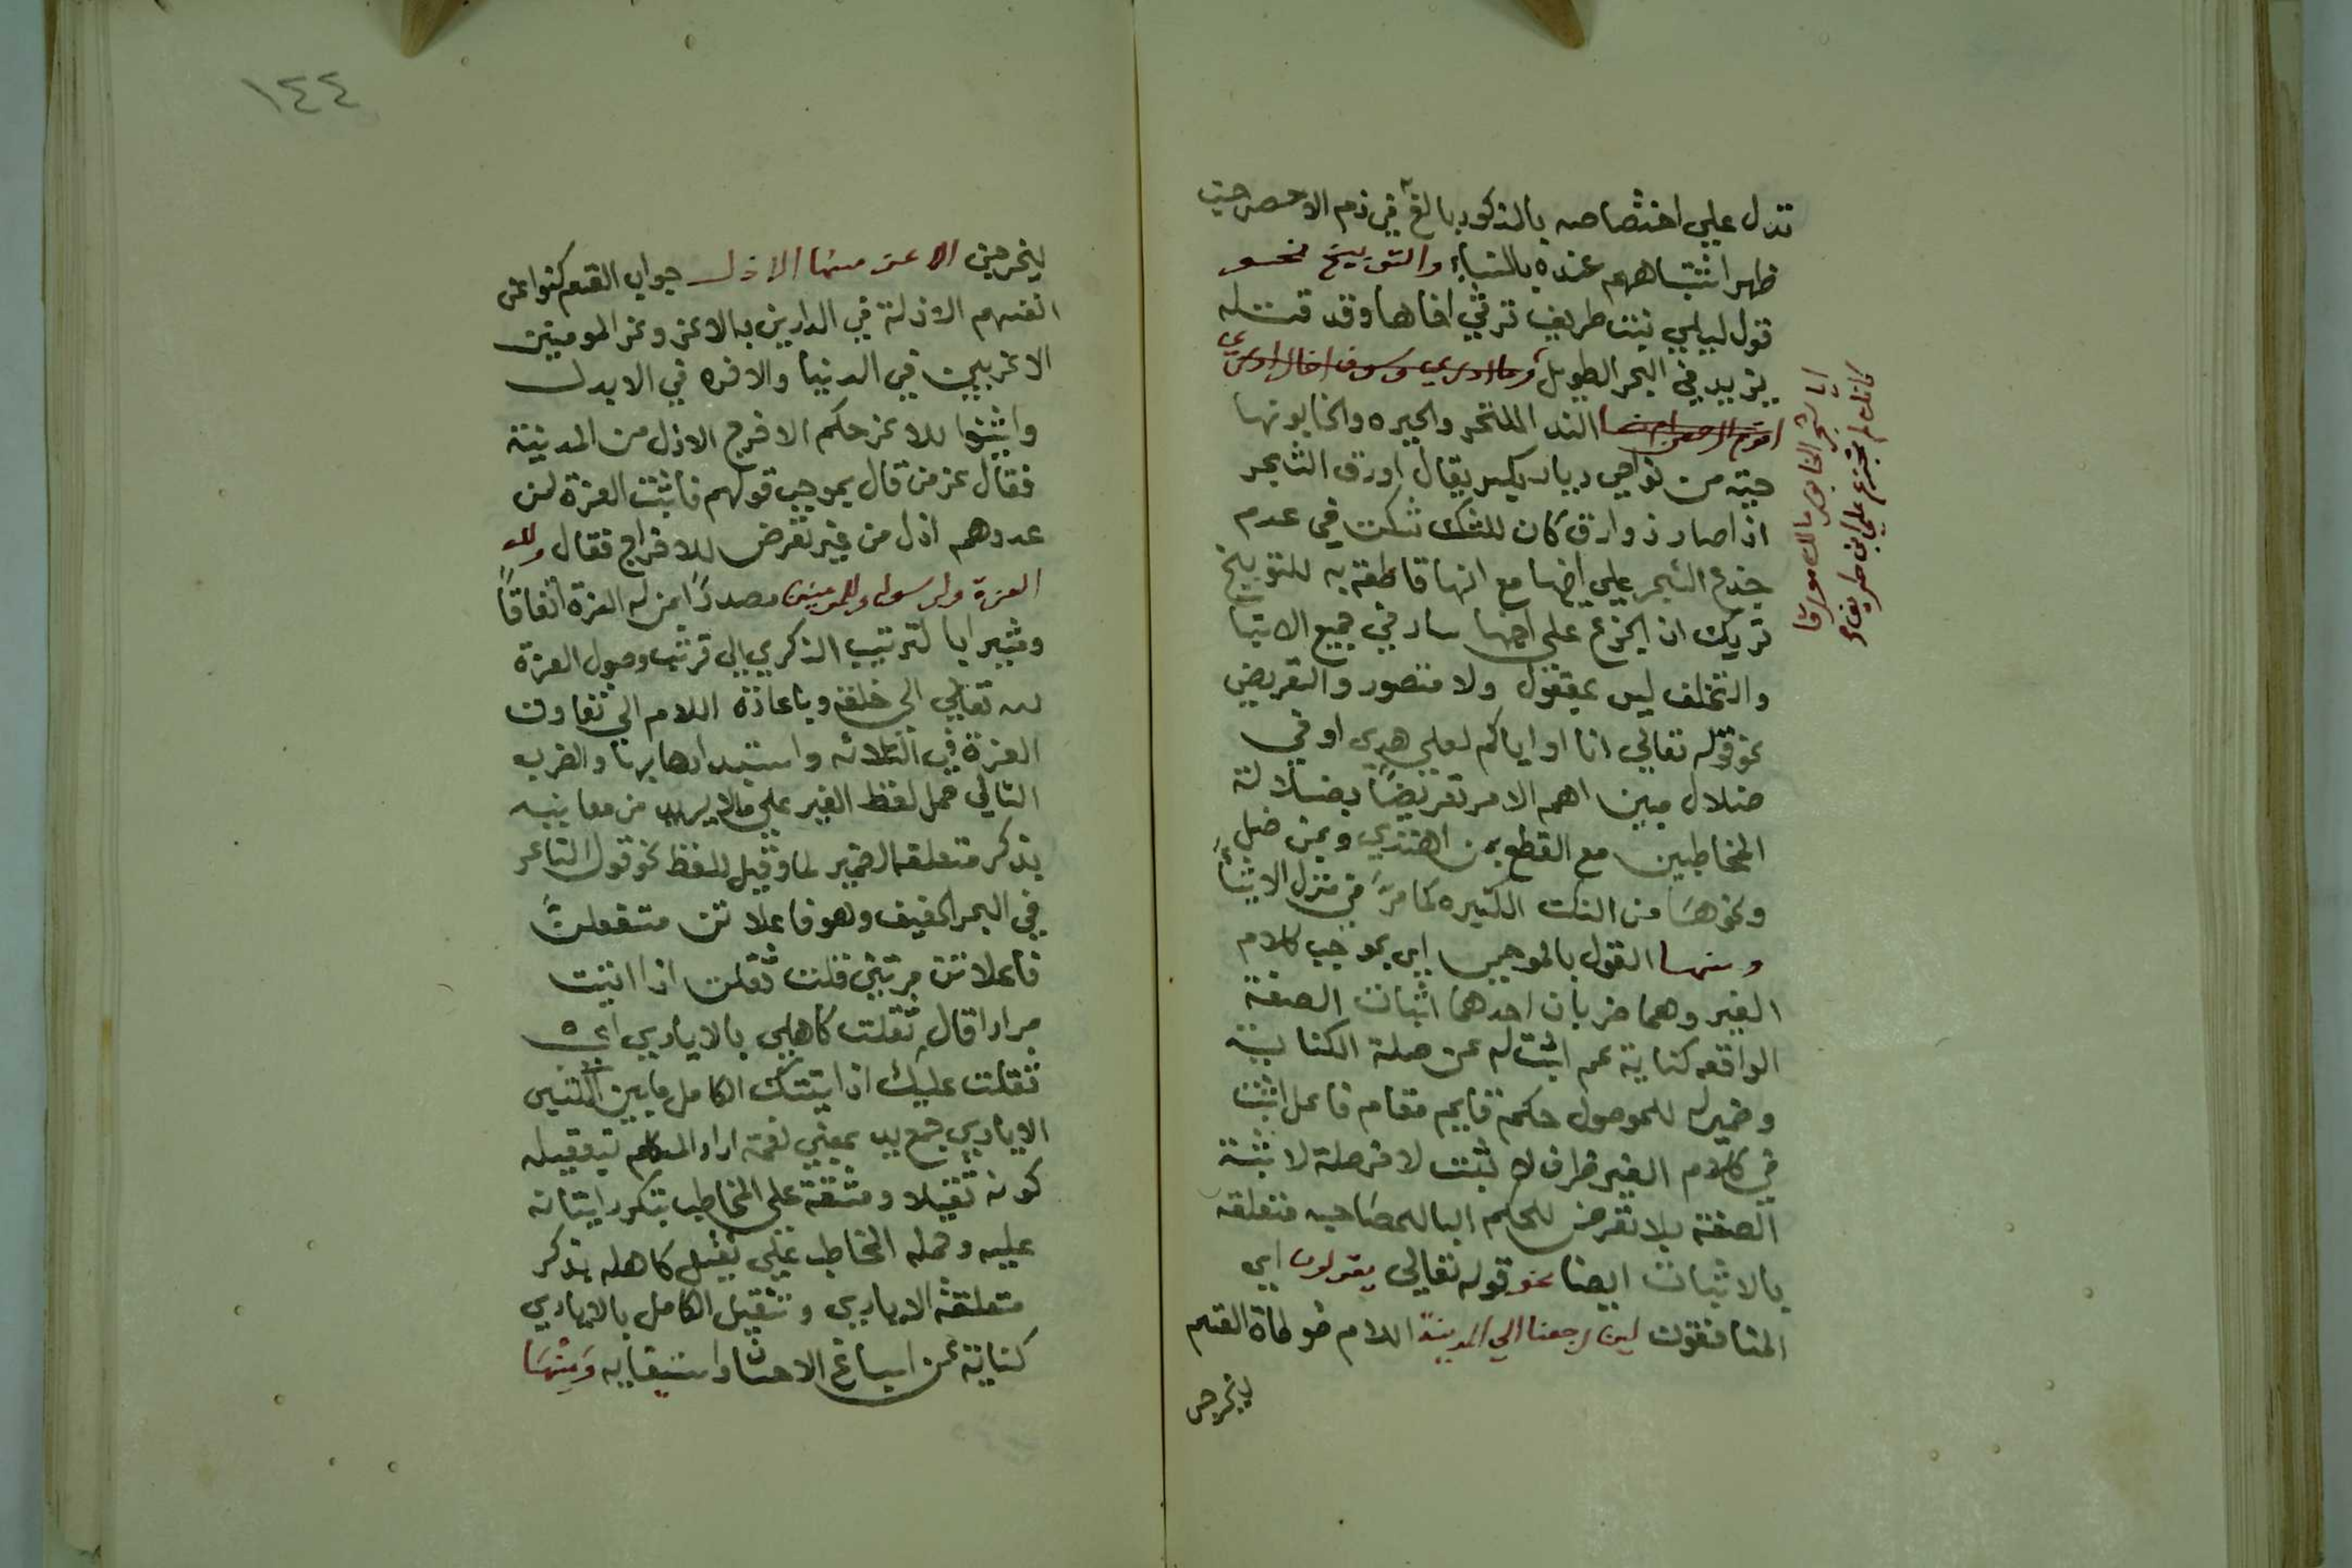 تدل علي اختصاصه بالمذكور بالغ في ذم الاحصر حيت
ظهر اشتباههم عنده بالنساء والتوبيخ نحسو
قول ليلي بنت طريف ترثي اخاها وقد قتله
يزيد في البحر الطويل وما ادري وسوف اخال ادري
اقوم ال حصن ام نسا الندا للتحر والحيره والخابورنها
حيته من نواحي ديار بكير يقال اورق الشجر
اذا صار ذو ارق كان للشك شكت في عدم
جزع الشجر علي اخيها مع انها قاطعة به للتوبيخ
تريك ان الجزع علي اخيها سار في جميع الاشيا
والتخلف ليس بمعقول ولا متصور والتعريض
نحو قوله تعالي انا او اياكم لعلي هدي او في
ضلال مبين اهم الامر تعريضًا بضلالة
المخاطبين مع القطع بمن اهتدي وبمن ضل
ونحوها من النكت الكثيره كما مرّ في
ومنها القول بالموجب اي بموجب كلام
الغير وهما ضربان احدهما اثبات الصفة
الواقعه كناية عم اثبت له عن صلة الكناية
وضمير له للموصول حكمة قايم مقام فاعل اثبت
في كلام الغير ظرف لا ثبت لا من صلة لا ثبتة
الصفة بلا تعرض للحكم البا للمصاحبه متعلقه
بالاثبات ايضا نحو قوله تعالي يقولون اي
المنافقون لين رجعنا الي المدينة اللام موطاة القسم
ليخرجن
ايا شجر الخابور مالك مورقا
كانك لم تجزع علي ابن طريف
١٤٤
ليخرجن الاعز منها الاذل جواب القسم كنوا عن
انفسهم الاذلة في الدارين بالاعز وعن المومنين
الاعزبين في الدنيا والاخره في الابدل
واثبتوا للاعز حكم الاخرج الاذل من المدينة
فقال عز من قال بموجب قولهم فاثبت العزة لمن
عدوهم اذل من غير تعرض للاخراج فقال ولله
العزة ولرسوله وللمومنين مصدرًا بمن له العزة اتفاقًا
ومشيرا بالترتيب الذكري الي ترتيب وصول العزة
لله تعالي الي خلقه وباعادة اللام الي تفاوت
العزة في الثلاثه واستبدادها بربنا والضرب
الثاني حمل لفظ الغير علي مالا يريد من معانيه
بذكر متعلقه الضمير لما وقيل للفظ نحو قول الشاعر
في البحر الخفيف وهو فاعلاتن مستفعلن
فاعلاتن مرتين قلت ثقلت اذا اتيت
مرارا قال ثقلت كاهلي بالايادي اي
ثقلت عليك اذا اتيتك الكاهل مابين الكتفين
الايادي جمع يد بمعني نعمة اراد المتكلم بتثقيله
كونه ثقيلا ومشقة علي المخاطب بتكرر اتيانه
عليه وحمله المخاطب علي ثقيل كاهله بذكر
متعلقه الايادي وتثقيل الكاهل بالايادي
كناية عن اسباغ الاحسان واستبقايه ومنها